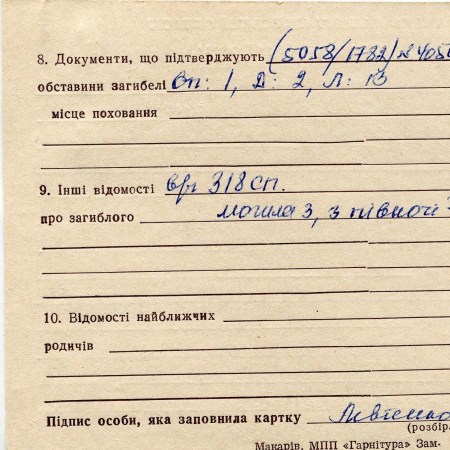 8. Документи, що підтверджують (5058/1782) № 405
обставини загибелі Оп: 1, Д: 2, Л: 13
місце поховання
9. Інші відомості в/ч 318 сп.
про загиблого могила 3, з півночі
10. Відомості найближчих
родичів
Підпис особи, яка заповнила картку
(розбір
Макарів, МПП «Гарнітура» Зам-